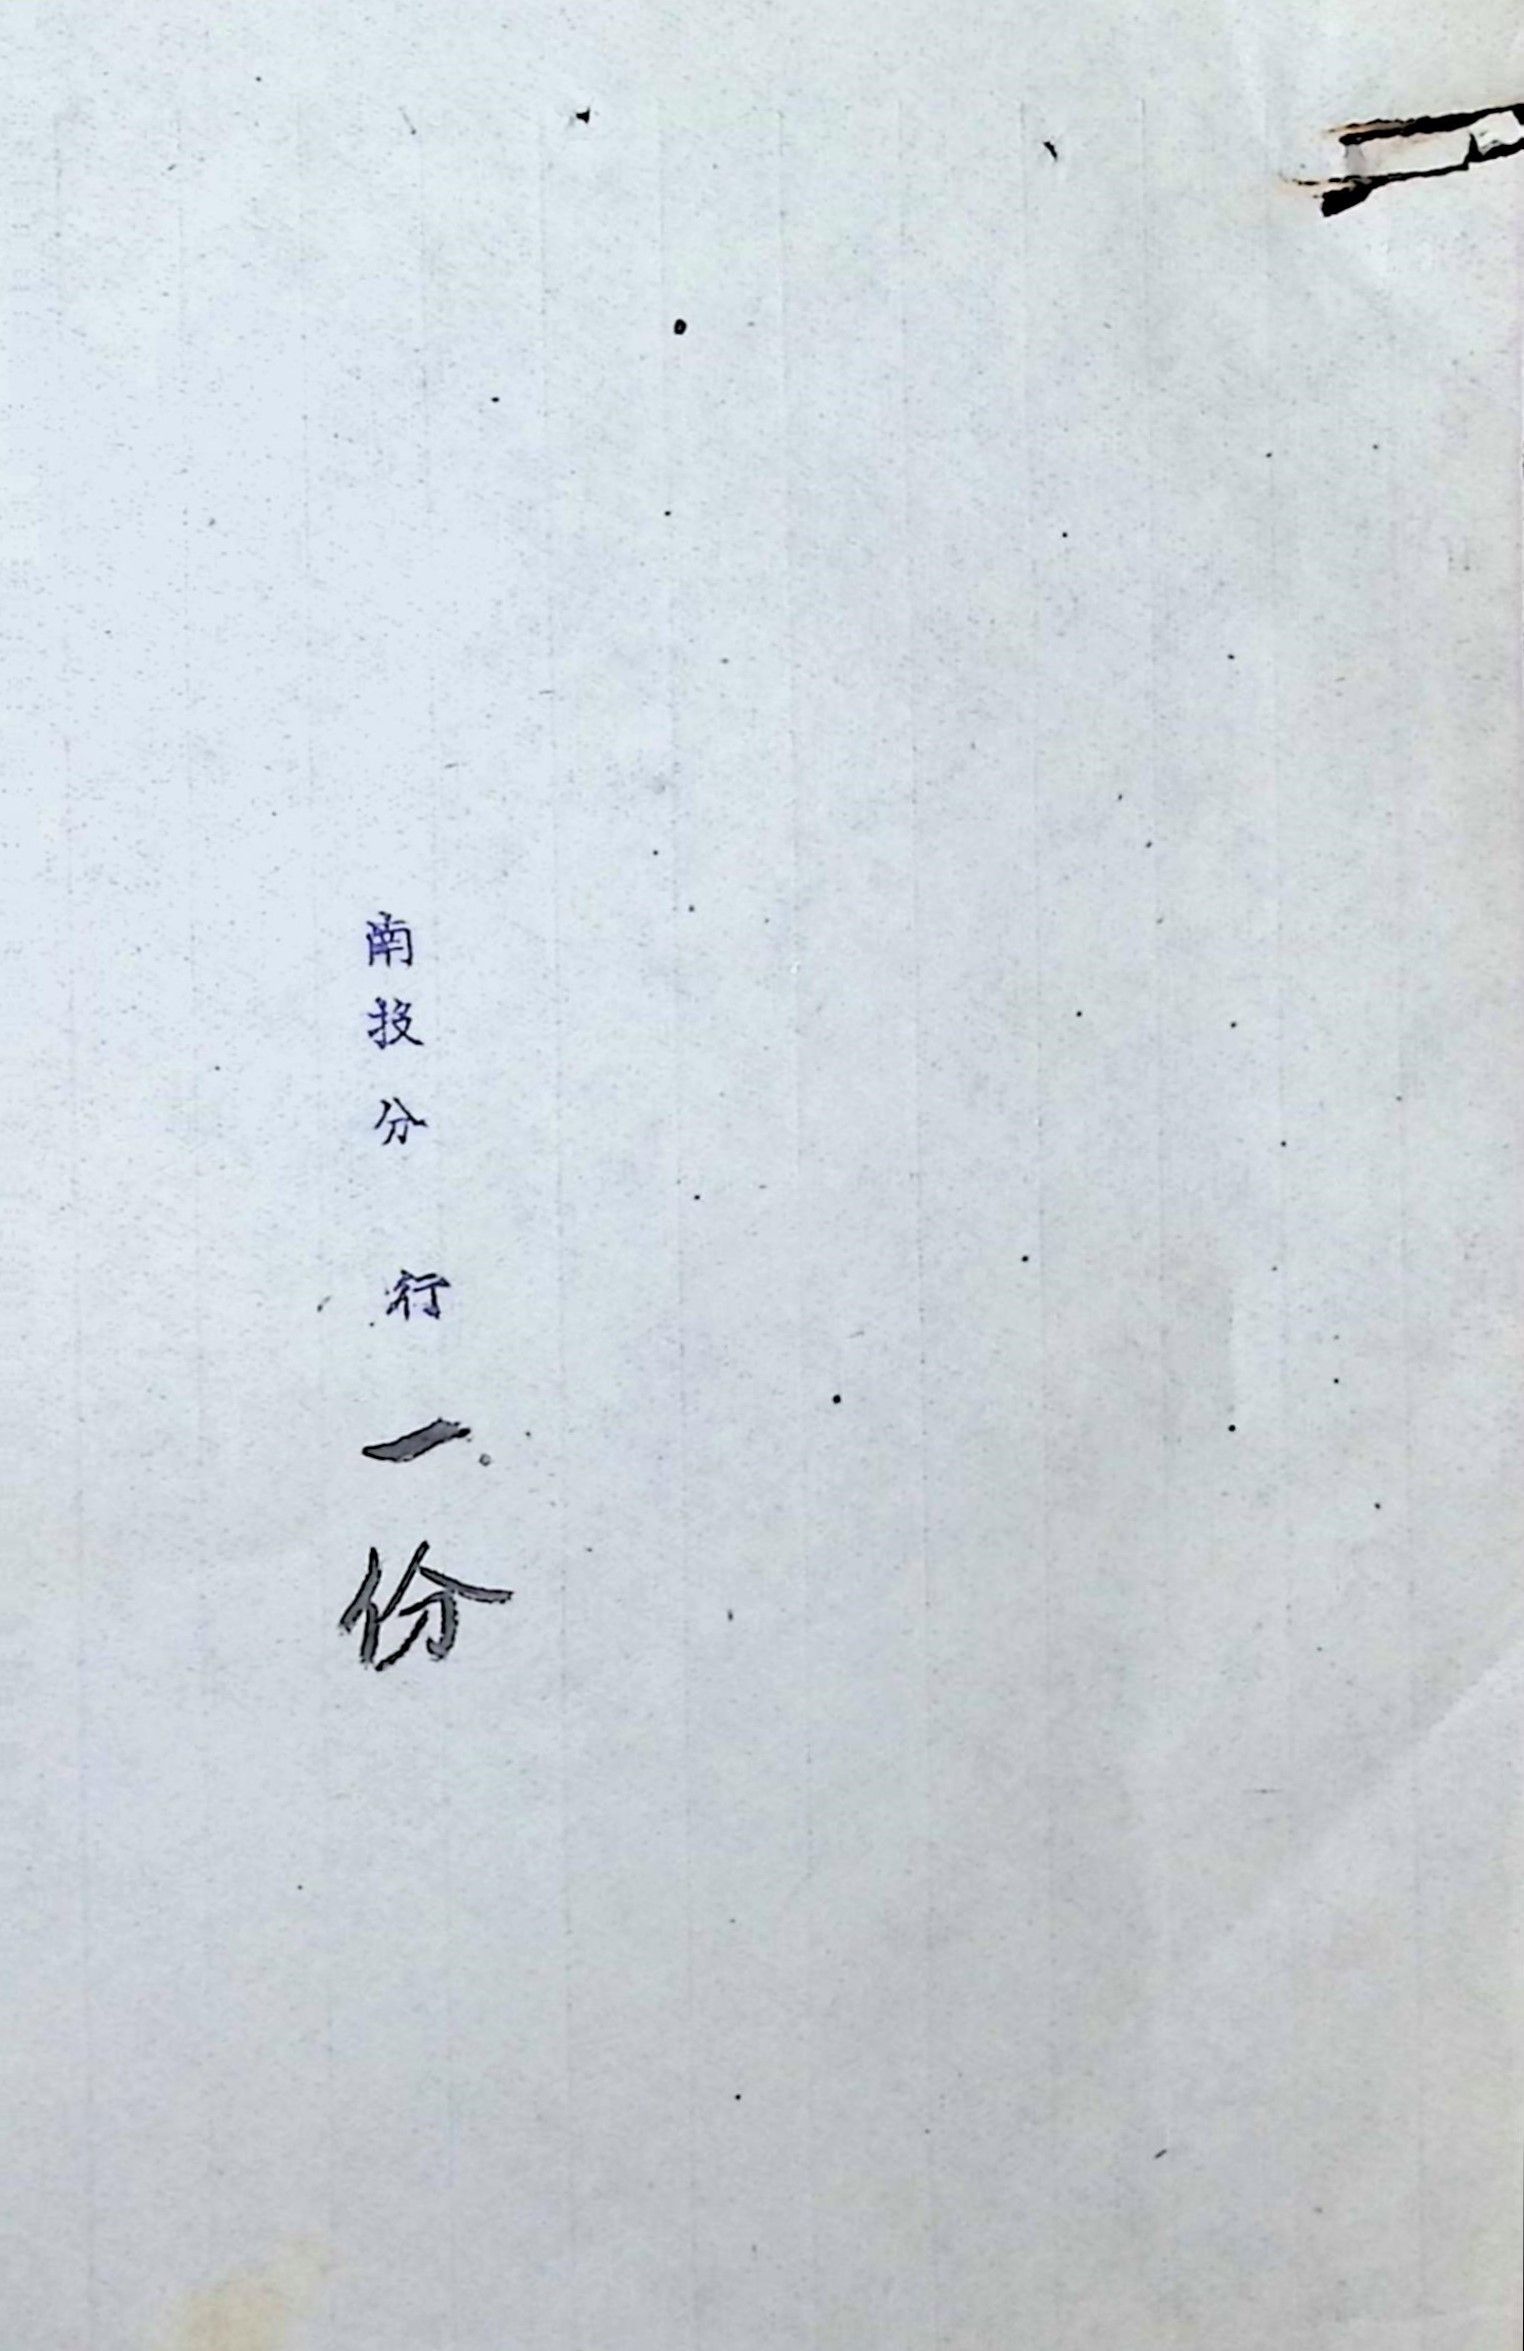 南投分行一份